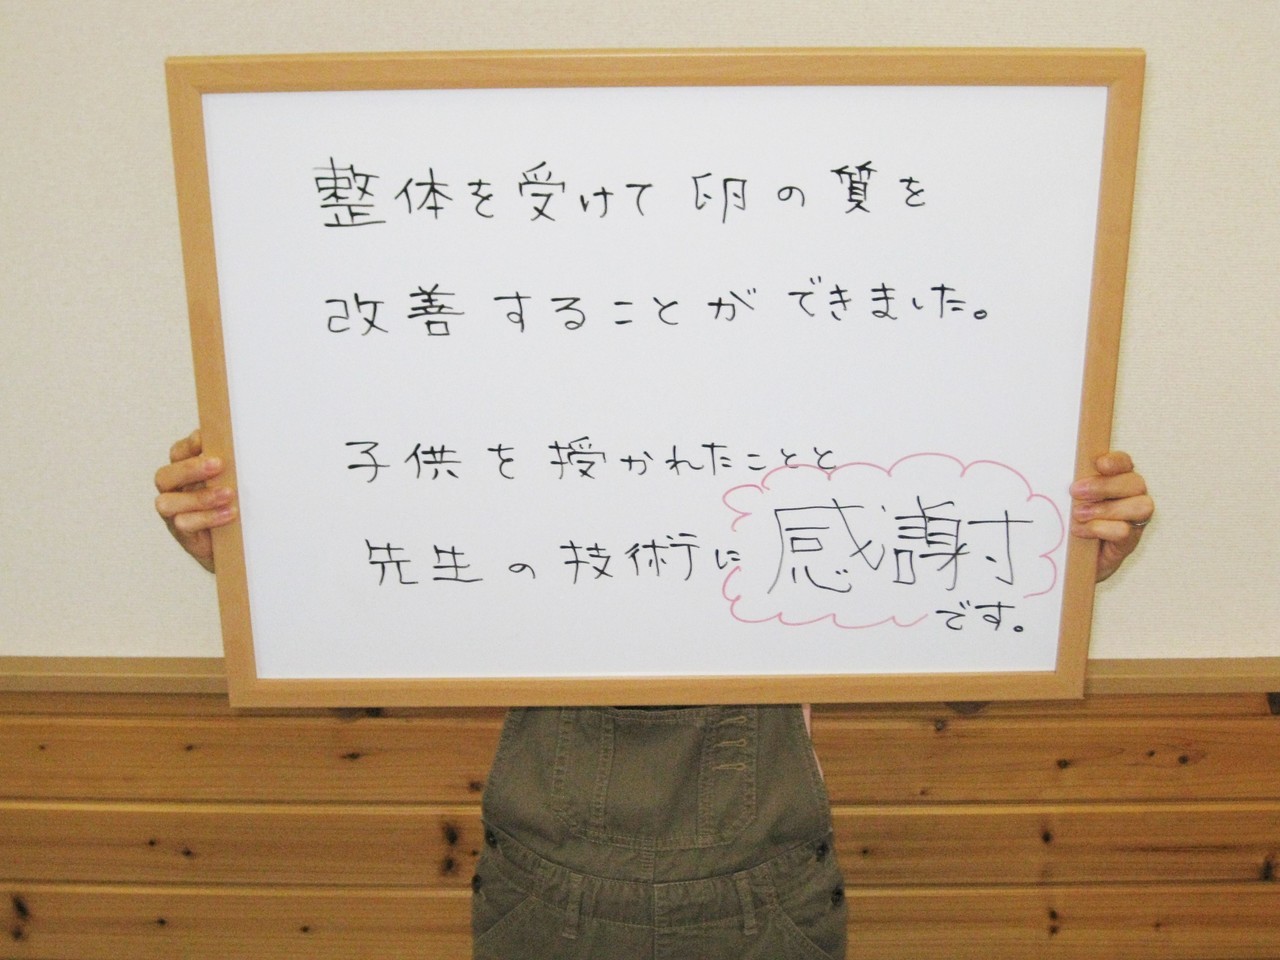 整体を受けて卵の質を
改善することができました。
子供を授かれたことと
先生の技術に感謝
です。